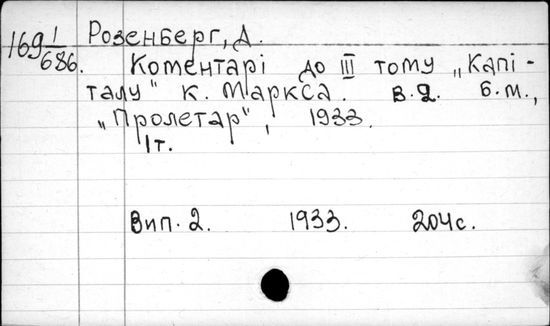 169 1/686. Розенберг, Д.
Коментарі до III тому „Капі-
талу" К. Маркса. В.2. Б.м.,
„Пролетар", 1933.
1т.
Вип. 2. 1933. 204с.